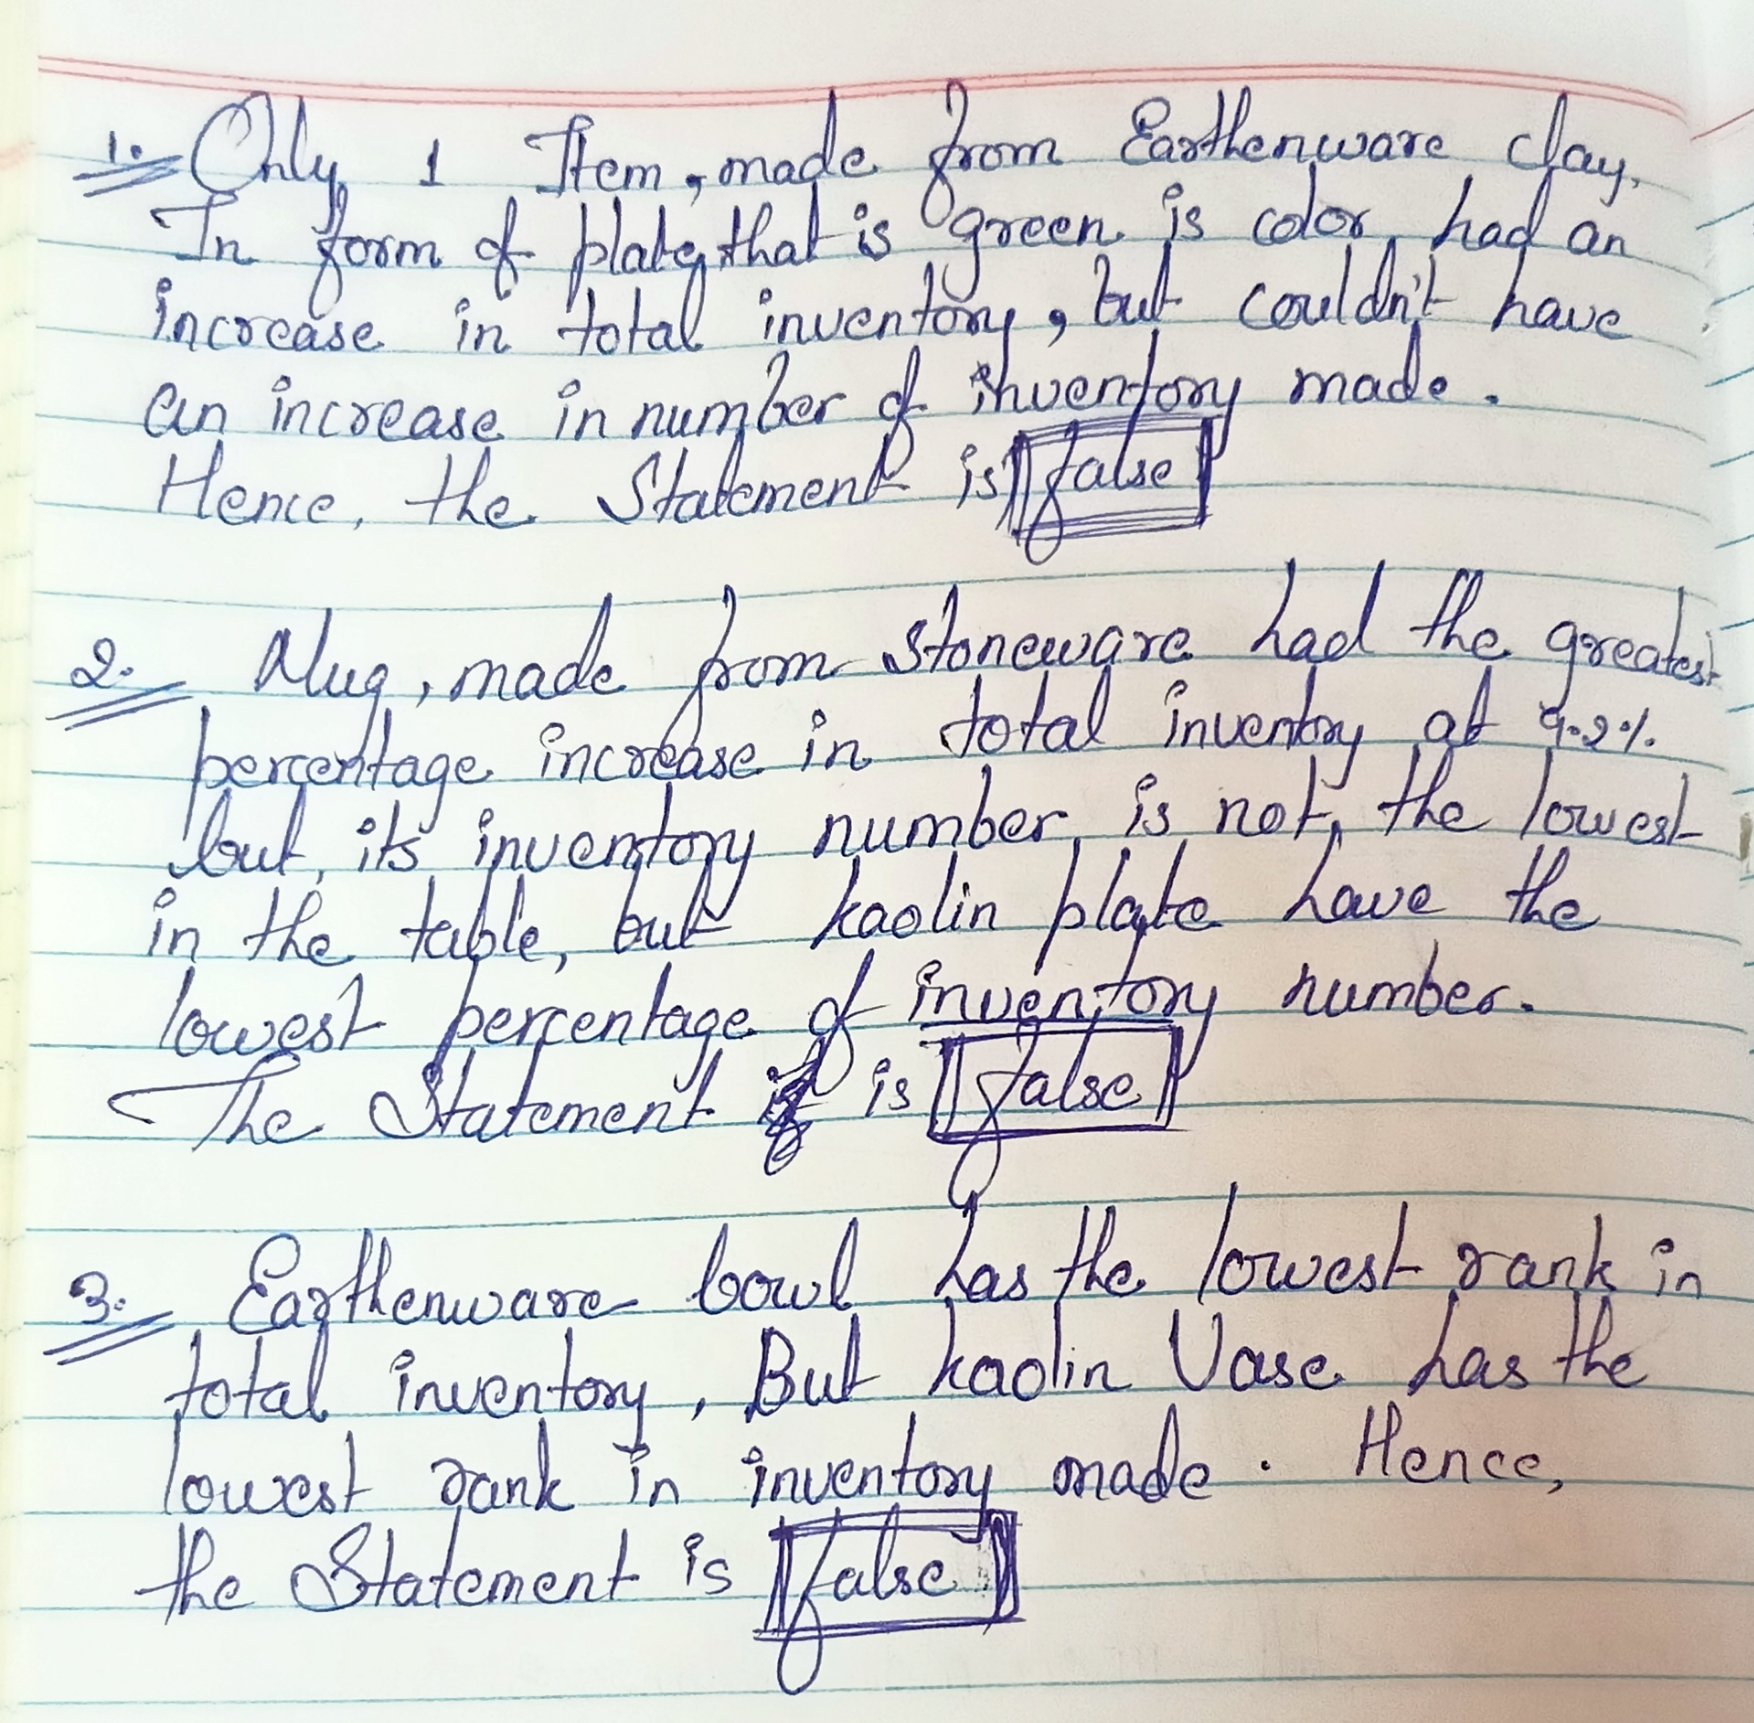 1. Only 1 Item, made from Earthenware clay,
In form of plate, that is green is color, had an
increase in total inventory, but couldn't have
an increase in number of inventory made.
Hence, the Statement is false
2. Mug, made from stoneware had the greatest
percentage increase in total inventory at 9.2%
but, its inventory number, is not, the lowest
in the table, but kaolin plate have the
lowest percentage of inventory number.
The Statement is false
3. Earthenware bowl has the lowest rank in
total inventory, But kaolin Vase has the
lowest rank in inventory made. Hence,
the Statement is false